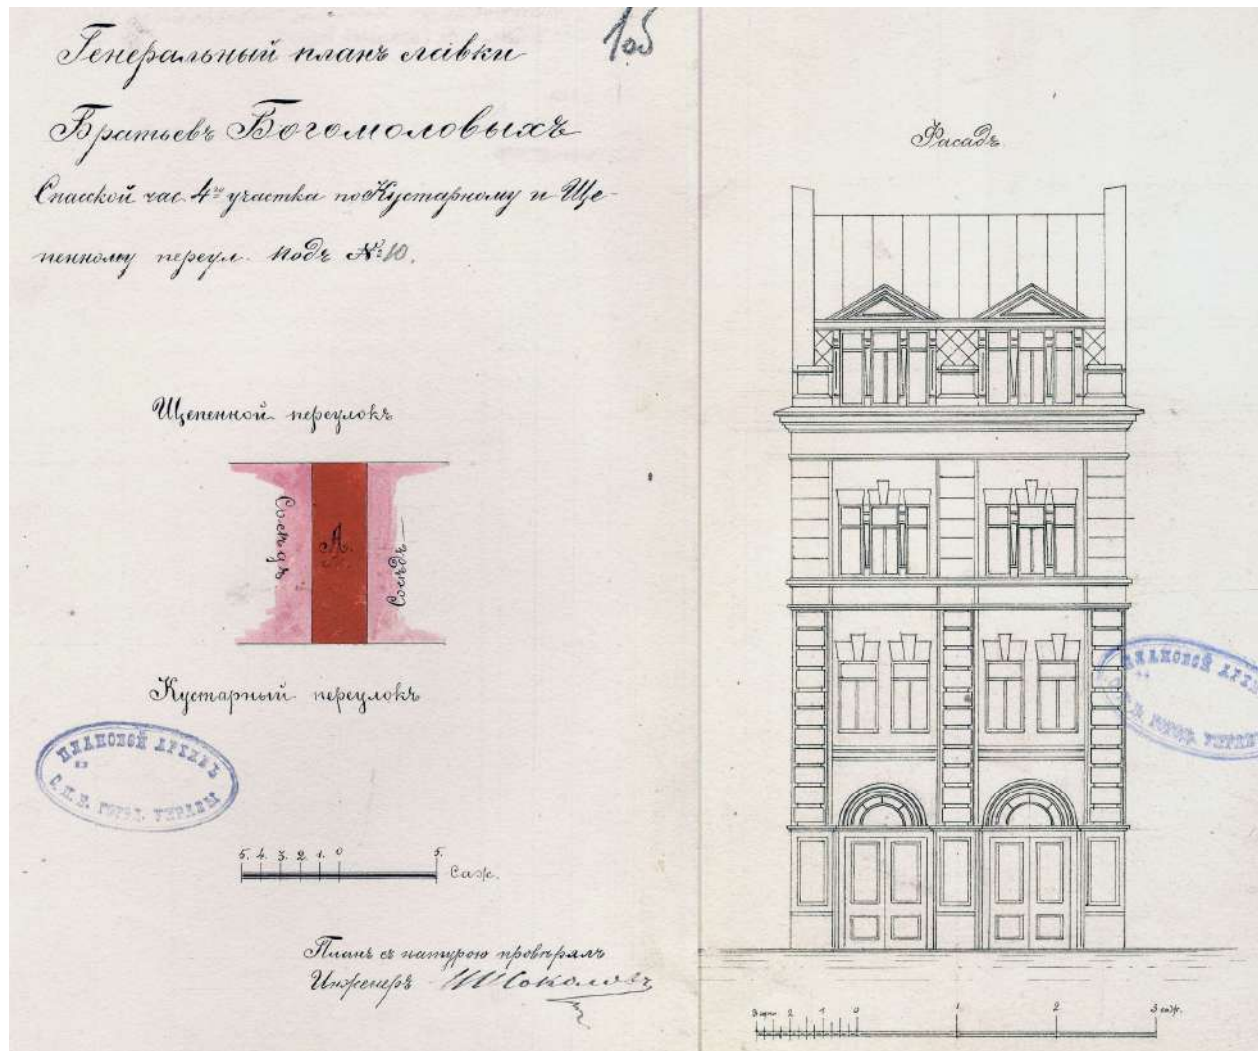 Генеральный планъ лавки
Братьевъ Богомоловыхъ
Спасской час. 4го участка по Кустарному и Ще-
пенному переул. подъ №10.
Щепенной переулокъ
Сосѣдъ
А.
Сосѣдъ
Кустарный переулокъ
ПЛАНОВОЙ АРХИВЪ
С. П. Б. ГОРОД. УПРАВЫ
5. 4. 3. 2. 1. 0 5. Саж.
Планъ съ натурою провѣрялъ
Инженеръ Соколовъ
Фасадъ
ПЛАНОВОЙ АРХ
ГОРОД. УПРАВ
3 арш. 2 1 0 1 2 3 саж.